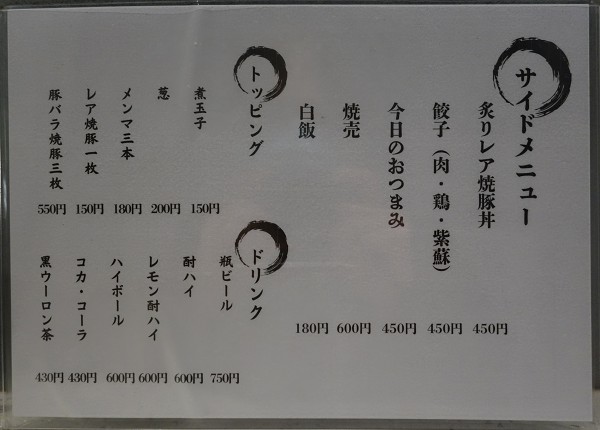 サイドメニュー
炙りレア焼豚丼 450円
餃子（肉・鶏・紫蘇） 450円
今日のおつまみ 450円
焼売 600円
白飯 180円
トッピング
煮玉子 150円
葱 200円
メンマ三本 180円
レア焼豚一枚 150円
豚バラ焼豚三枚 550円
ドリンク
瓶ビール 750円
酎ハイ 600円
レモン酎ハイ 600円
ハイボール 600円
コカ・コーラ 430円
黒ウーロン茶 430円